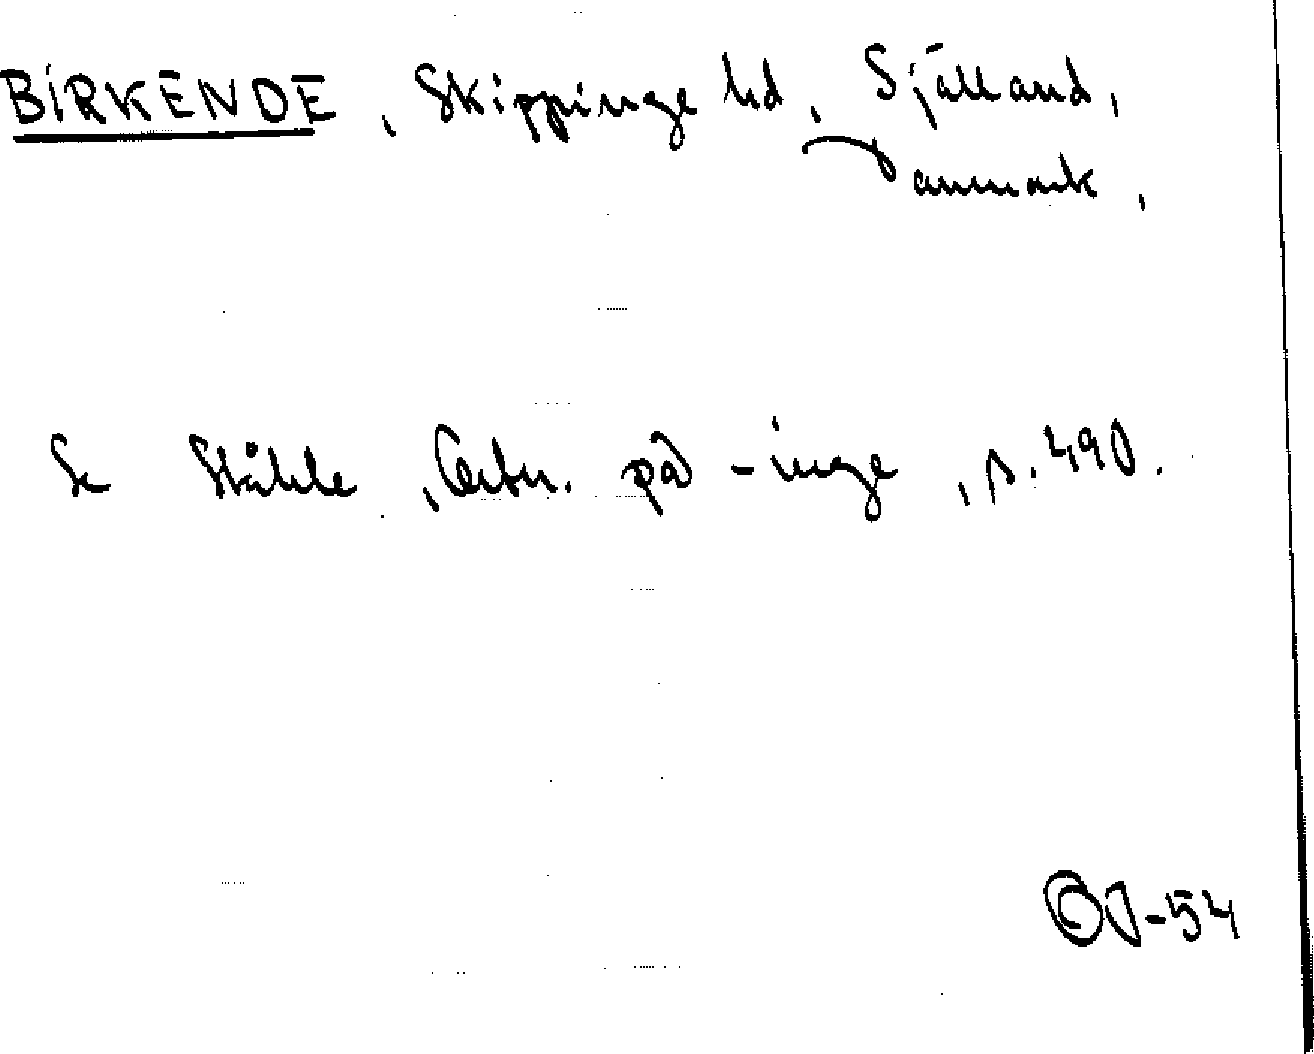 BIRKENDE, Skippinge hd, Själland,
Danmark,
Se Ståhle, Ortn. på -inge, s. 490.
OJ-54